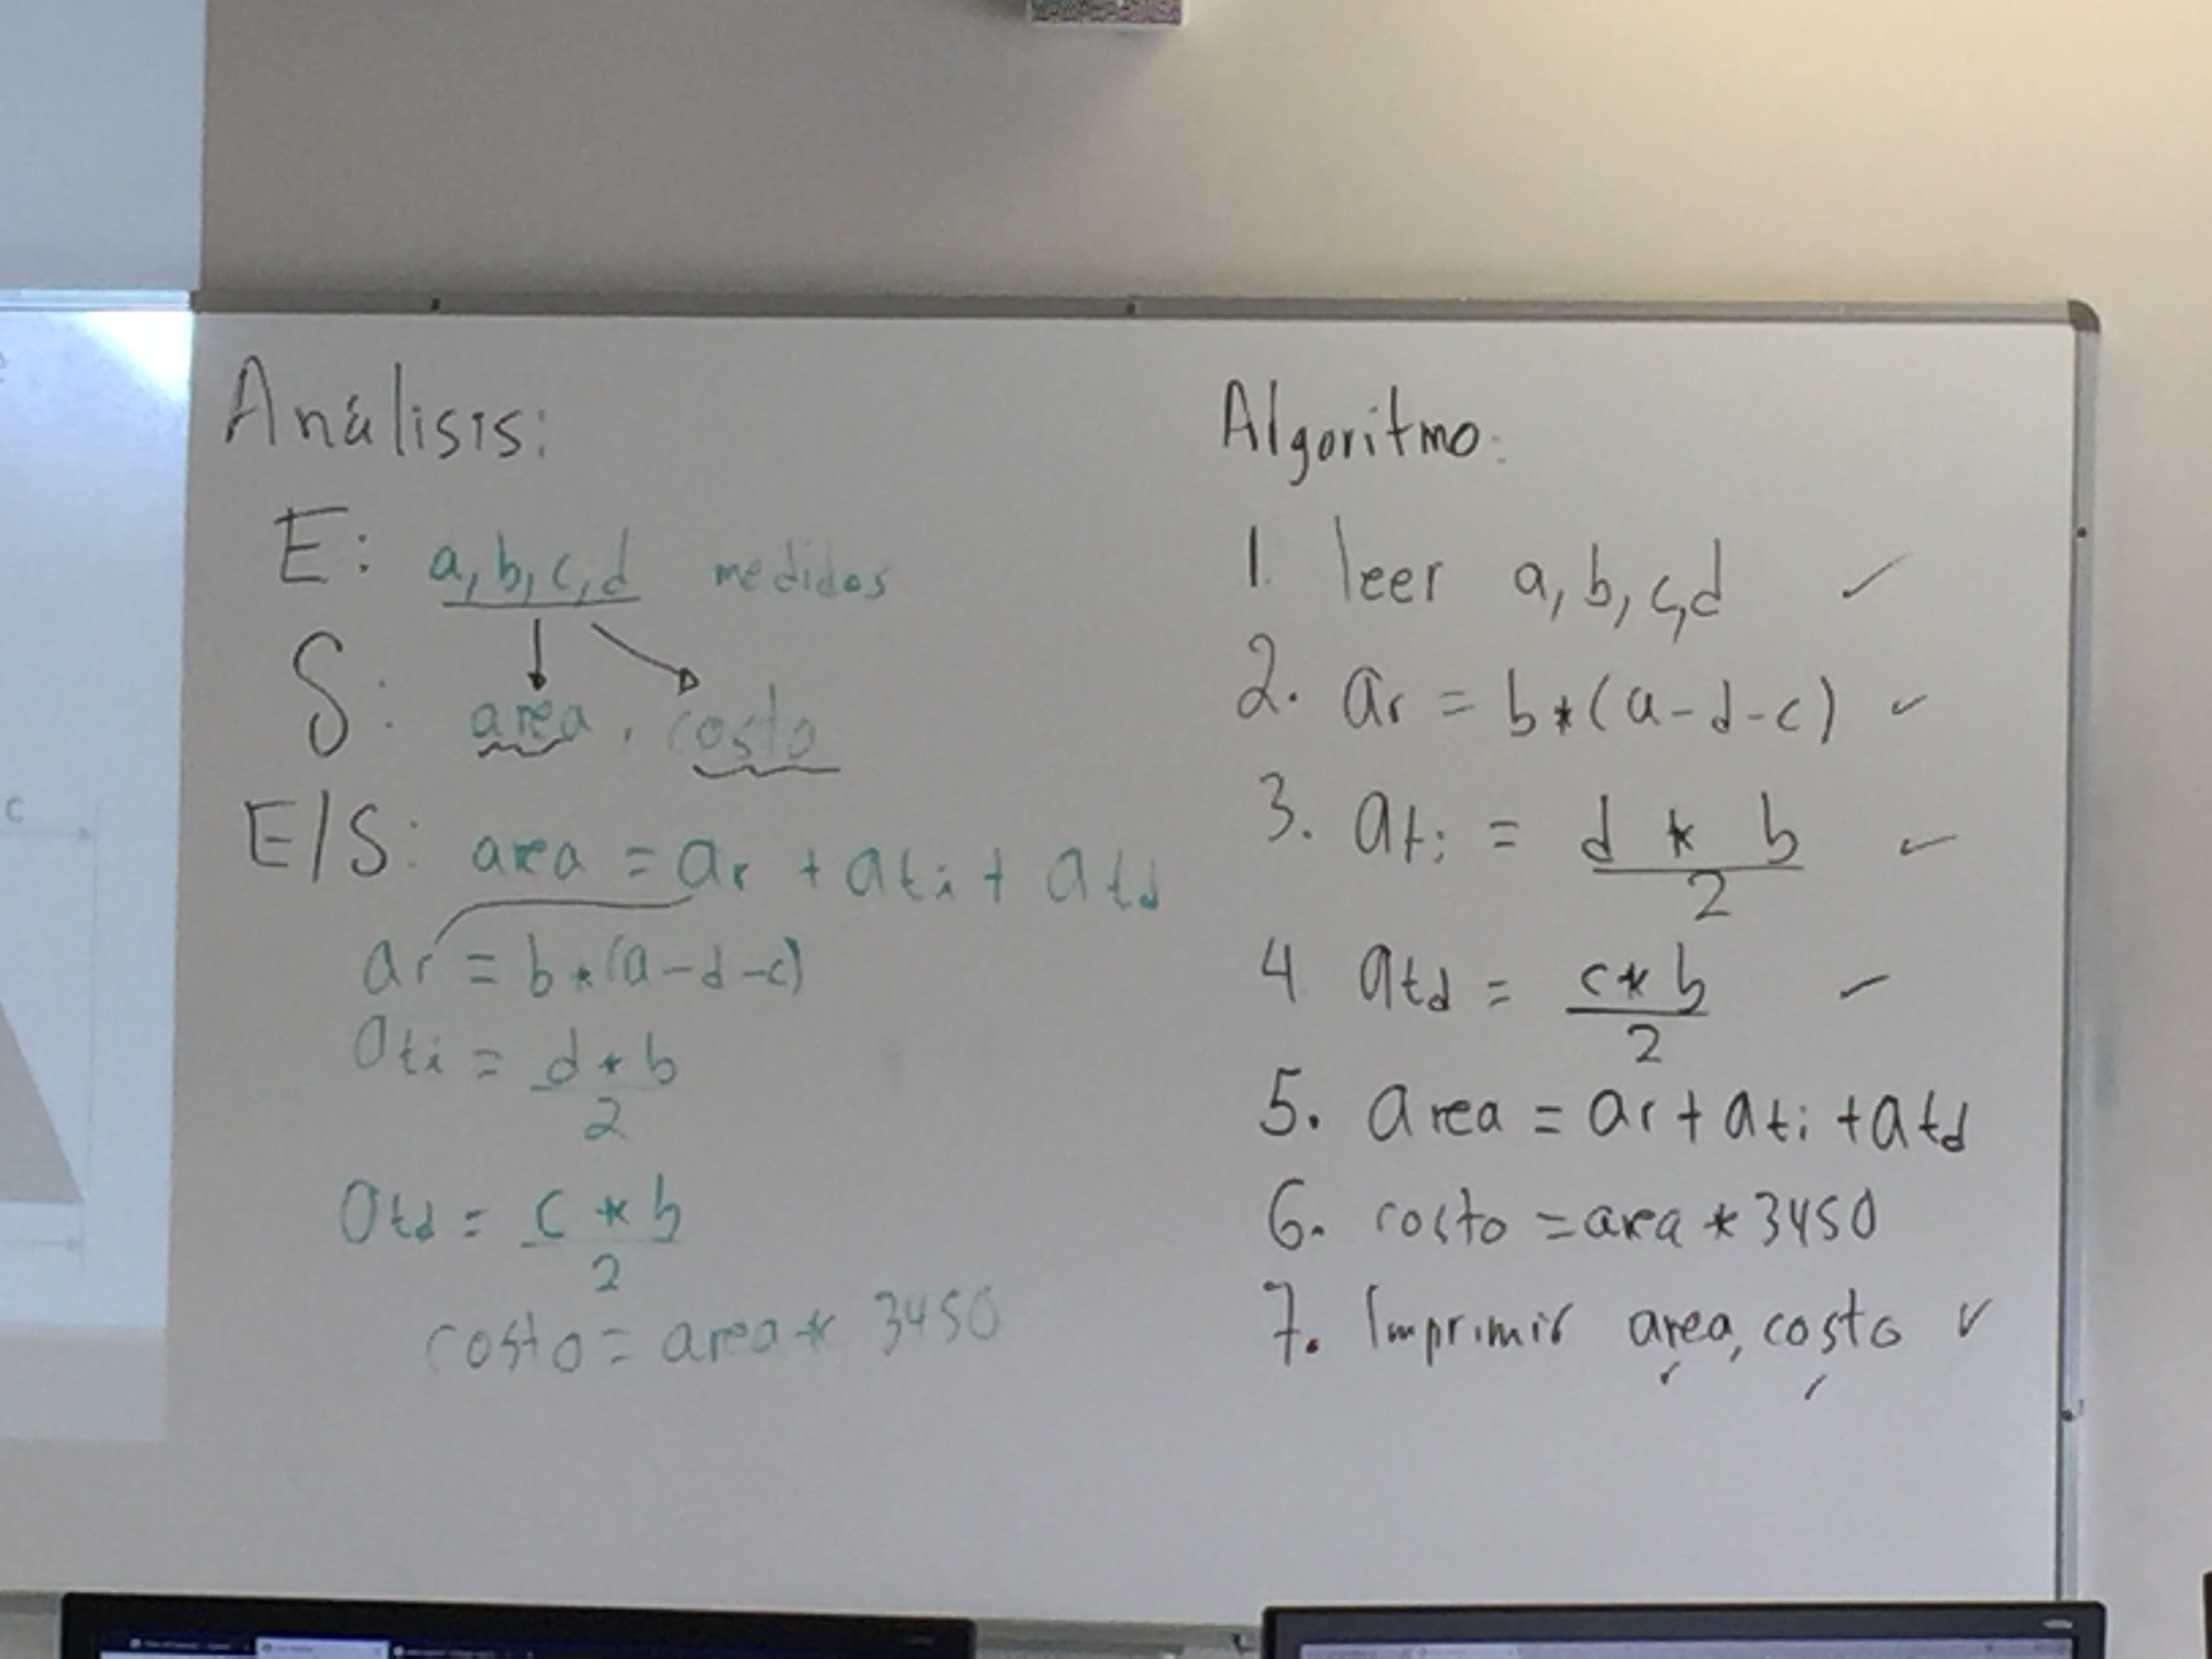 Análisis:
E: a, b, c, d medidas
S: area, costo
E/S: area = ar + ati + atd
ar = b * (a - d - c)
ati = d * b
2
atd = c * b
2
costo = area * 3450
Algoritmo:
1. leer a, b, c, d ✓
2. ar = b * (a - d - c) ✓
3. ati = d * b ✓
2
4 atd = c * b ✓
2
5. area = ar + ati + atd
6. costo = area * 3450
7. Imprimir area, costo ✓
c